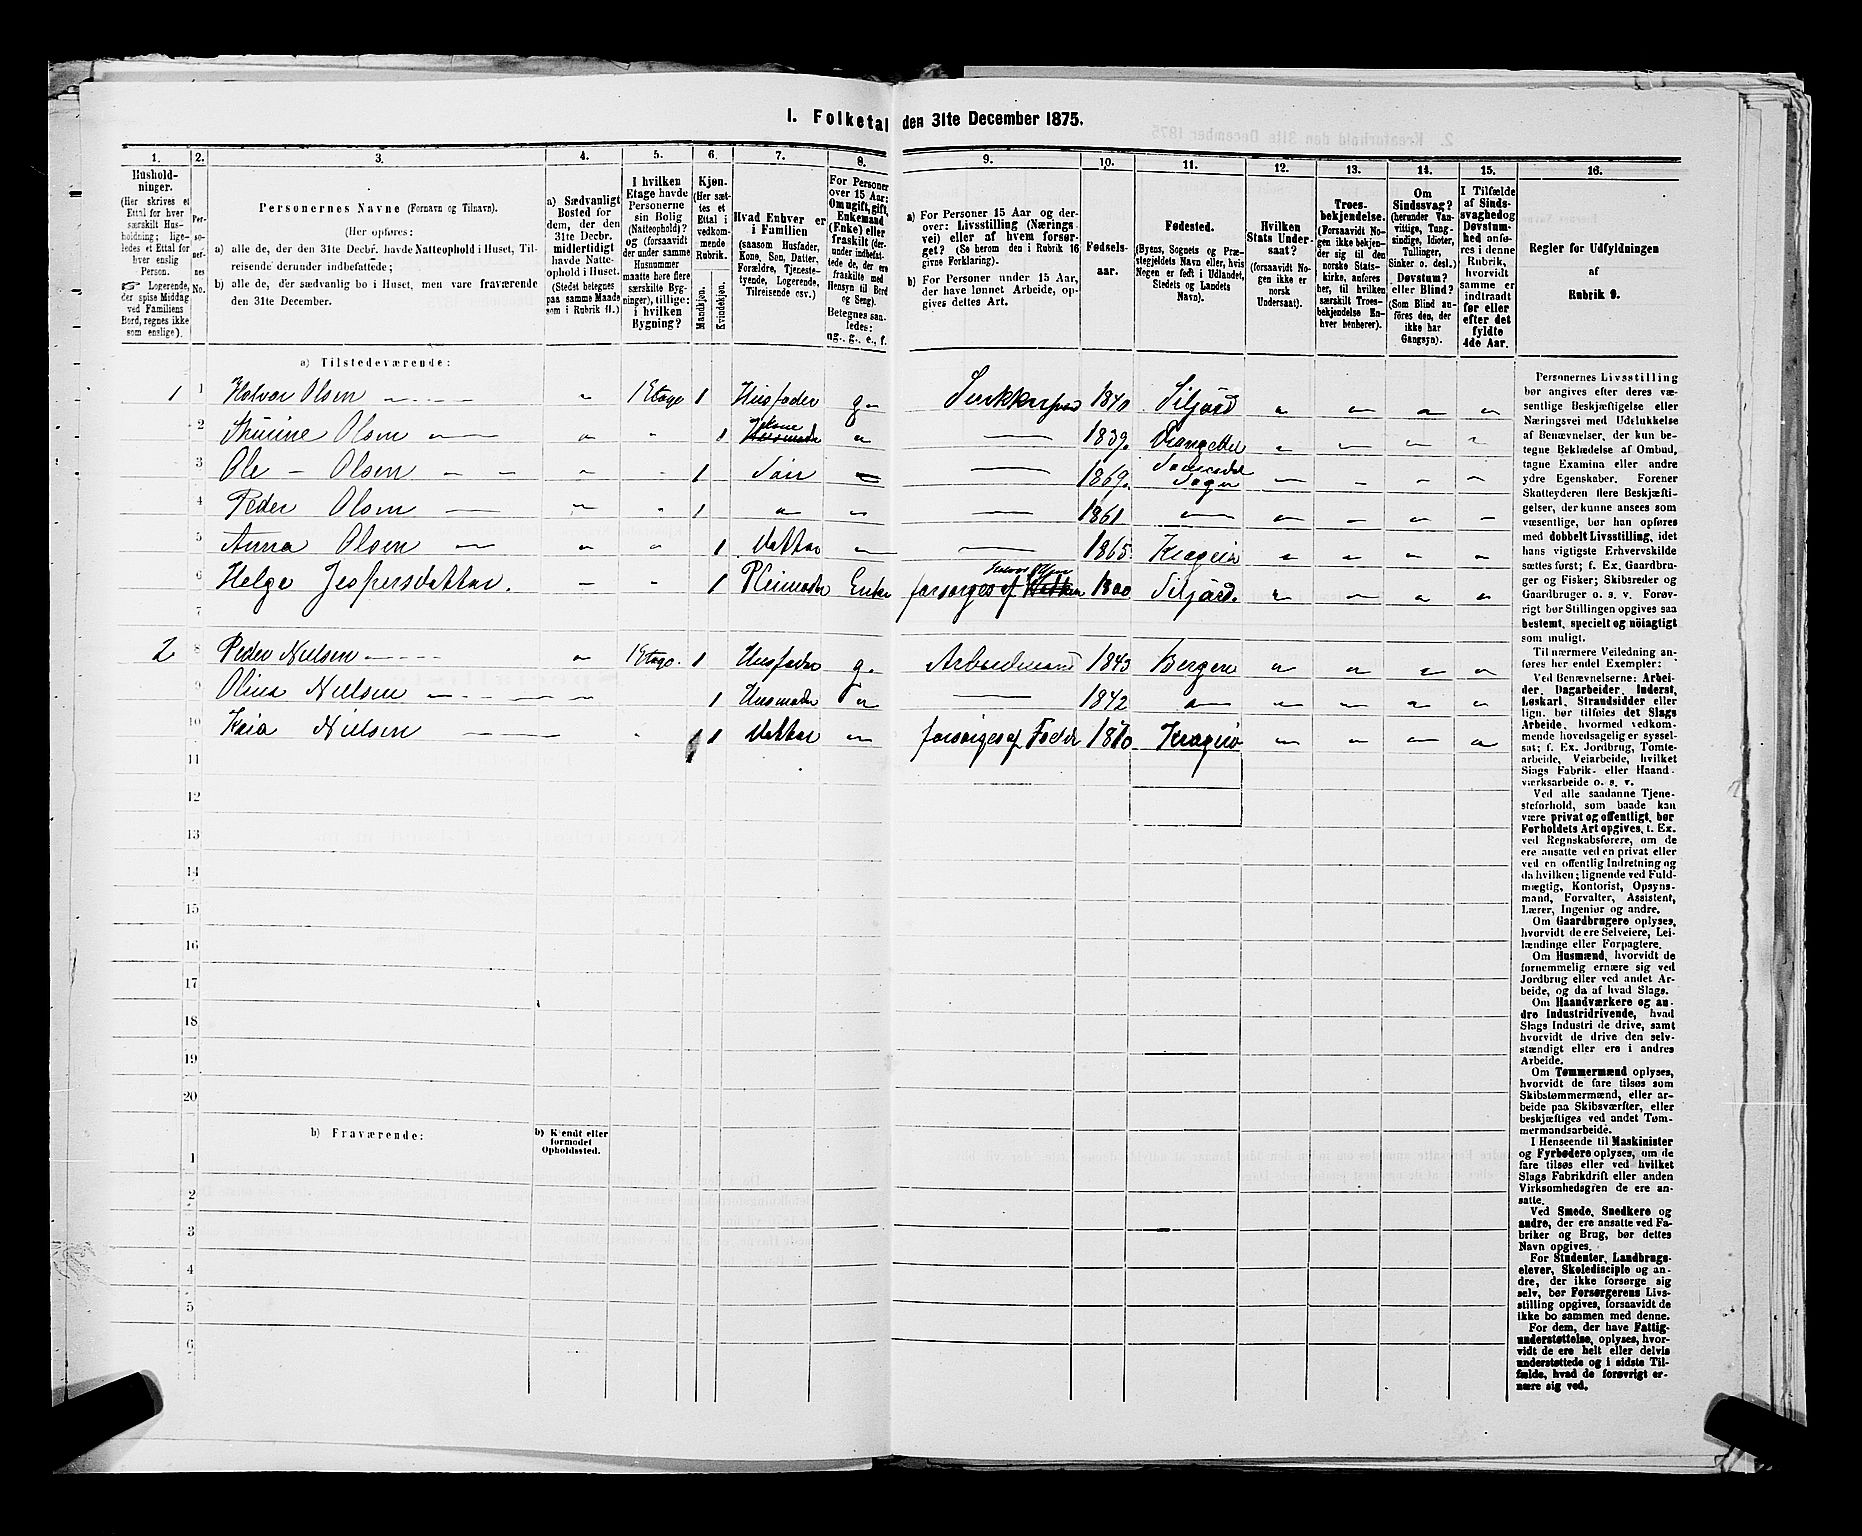 I. Folketal den 31te December 1875.
1. 2. 3. 4. 5. 6. 7. 8. 9. 10. 11. 12. 13. 14. 15. 16.
Hushold-
ninger.
(Her skrives et
Ettal for hver
særskilt Hus-
holdning; lige-
ledes et Ettal for
hver enslig
Person.
☞ Logerende,
der spise Middag
ved Familiens
Bord, regnes ikke
som enslige).
Per-
so-
ner-
nes
No.
Personernes Navne (Fornavn og Tilnavn).
(Her opføres:
a) alle de, der den 31te Decbr. havde Natteophold i Huset, Til-
reisende derunder indbefattede;
b) alle de, der sædvanlig bo i Huset, men vare fraværende
den 31te December.
a) Sædvanligt
Bosted for
dem, der den
31te Decbr.
midlertidigt
havde Natte-
ophold i Huset.
(Stedet betegnes
paa samme Maade
som i Rubrik 11.)
I hvilken
Etage havde
Personerne
sin Bolig
(Natteophold)?
og (forsaavidt
der under samme
Husnummer
maatte høre flere
særskilte Byg-
ninger), tillige:
i hvilken
Bygning?
Kjøn.
(Her sæt-
tes et
Ettal i
vedkom-
mende
Rubrik.
Mandkjøn.
Kvindekjøn.
Hvad Enhver er
i Familien
(saasom Husfader,
Kone, Søn, Datter,
Forældre, Tjeneste-
tyende, Logerende,
Tilreisende osv.)
For Personer
over 15 Aar:
Om ugift, gift,
Enkemand
(Enke) eller
fraskilt (der-
under indbefat-
tede de, der ere
fraskilte med
Hensyn til Bord
og Seng).
Betegnes saa-
ledes:
ug., g., e., f.
a) For Personer 15 Aar og der-
over: Livsstilling (Nærings-
vei) eller af hvem forsør-
get? (Se herom den i Rubrik 16
givne Forklaring).
b) For Personer under 15 Aar,
der have lønnet Arbeide, op-
gives dettes Art.
Fødsels-
aar.
Fødested.
(Byens, Sognets og Præ-
stegjeldets Navn eller, hvis
Nogen er født i Udlandet,
Stedets og Landets
Navn).
Hvilken
Stats Under-
saat?
(forsaavidt No-
gen ikke er
norsk
Undersaat).
Troes-
bekjendelse.
(Forsaavidt No-
gen ikke bekjen-
der sig til den
norske Stats-
kirke, anføres
her, til hvilken
særskilt Troes-
bekjendelse En-
hver henhører).
Om
Sindssvag?
(herunder Van-
vittige, Tung-
sindige, Idioter,
Tullinger,
Sinker o. desl.)
Døvstum?
eller Blind?
(Som Blind an-
føres den, der
ikke har
Gangsyn).
I Tilfælde
af Sinds-
svaghed og
Døvstum-
hed anfø-
res i denne
Rubrik,
hvorvidt
samme er
indtraadt
før eller
efter det
fyldte
4de Aar.
Regler for Udfyldningen
af
Rubrik 9.
a) Tilstedeværende:
1 1 Halvor Olsen 1 Etage 1 Husfader g 1840 Siljord
2 Olsen 1 Kone 1839. Drangedal
3 Ole Olsen 1 Søn 1869. Sannikedal Sogn
4 Peder Olsen 1 1861
5 Anna Olsen 1 Datter 1865 Kragerø
6 Helge Jespersdatter. 1 Pleimoder Enke forsørges af 1800 Siljord.
7
2 8 Peder Nielsen 1 Etage. 1 Husfader g Arbeidmand 1843 Bergen
9 Olina Nielsen 1 Husmoder 1842
10 Kaia Nielsen 1 Datter forsørges af Fader 1870 Kragerø
11
12
13
14
15
16
17
18
19
20
b) Fraværende:
b) Kjendt eller
formodet
Opholdssted.
1
2
3
4
5
6
Personernes Livsstilling
bør angives efter deres væ-
sentlige Beskjæftigelse eller
Næringsvei med Udelukkelse
af Benævnelser, der kun be-
tegne Beklædelse af Ombud,
tagne Examina eller andre
ydre Egenskaber. Forener
Skatteyderen flere Beskjæfti-
gelser, der kunne ansees som
væsentlige, bør han opføres
med dobbelt Livsstilling, idet
hans vigtigste Erhvervskilde
sættes først; f. Ex. Gaardbru-
ger og Fisker; Skibsreder og
Gaardbruger o. s. v. Forøv-
rigt bør Stillingen opgives saa
bestemt, specielt og nøiagtigt
som muligt.
Til nærmere Veiledning an-
føres her endel Exempler:
Ved Benævnelserne: Arbei-
der, Dagarbeider, Inderst,
Løskarl, Strandsidder eller
lign. bør tilføies det Slags
Arbeide, hvormed vedkom-
mende hovedsagelig er syssel-
sat; f. Ex. Jordbrug, Tomte-
arbeide, Veiarbeide, hvilket
Slags Fabrik- eller Haand-
værksarbeide o. s. v.
Ved alle saadanne Tjene-
steforhold, som baade kan
være privat og offentligt, bør
Forholdets Art opgives, t. Ex.
ved Regnskabsførere, om de
ere ansatte ved en privat eller
ved en offentlig Indretning og
da hvilken; lignende ved Fuld-
mægtig, Kontorist, Opsyns-
mand, Forvalter, Assistent,
Lærer, Ingeniør og andre.
Om Gaardbrugere oplyses,
hvorvidt de ere Selveiere, Lei-
lændinge eller Forpagtere.
Om Husmænd, hvorvidt de
fornemmelig ernære sig ved
Jordbrug eller ved andet Ar-
beide, og da af hvad Slags.
Om Haandværkere og an-
dre Industridrivende, hvad
Slags Industri de drive, samt
hvorvidt de drive den selv-
stændigt eller ere i andres
Arbeide.
Om Tømmermænd oplyses,
hvorvidt de fare tilsøs som
Skibstømmermænd, eller ar-
beide paa Skibsværfter, eller
beskjæftiges ved andet Tøm-
mermandsarbeide.
I Henseende til Maskinister
og Fyrbødere oplyses, om de
fare tilsøs eller ved hvilket
Slags Fabrikdrift eller anden
Virksomhedsgren de ere an-
satte.
Ved Smede, Snedkere og
andre, der ere ansatte ved Fa-
briker og Brug, bør dettes
Navn opgives.
For Studenter, Landbrugs-
elever, Skoledisciple og an-
dre, der ikke forsørge sig
selv, bør Forsørgerens Livs-
stilling opgives, forsaavidt de
ikke bo sammen med denne.
For dem, der have Fattig-
understøttelse, oplyses, hvor-
vidt de ere helt eller delvis
understøttede og i sidste Til-
fælde, hvad de forøvrigt er-
nære sig ved.